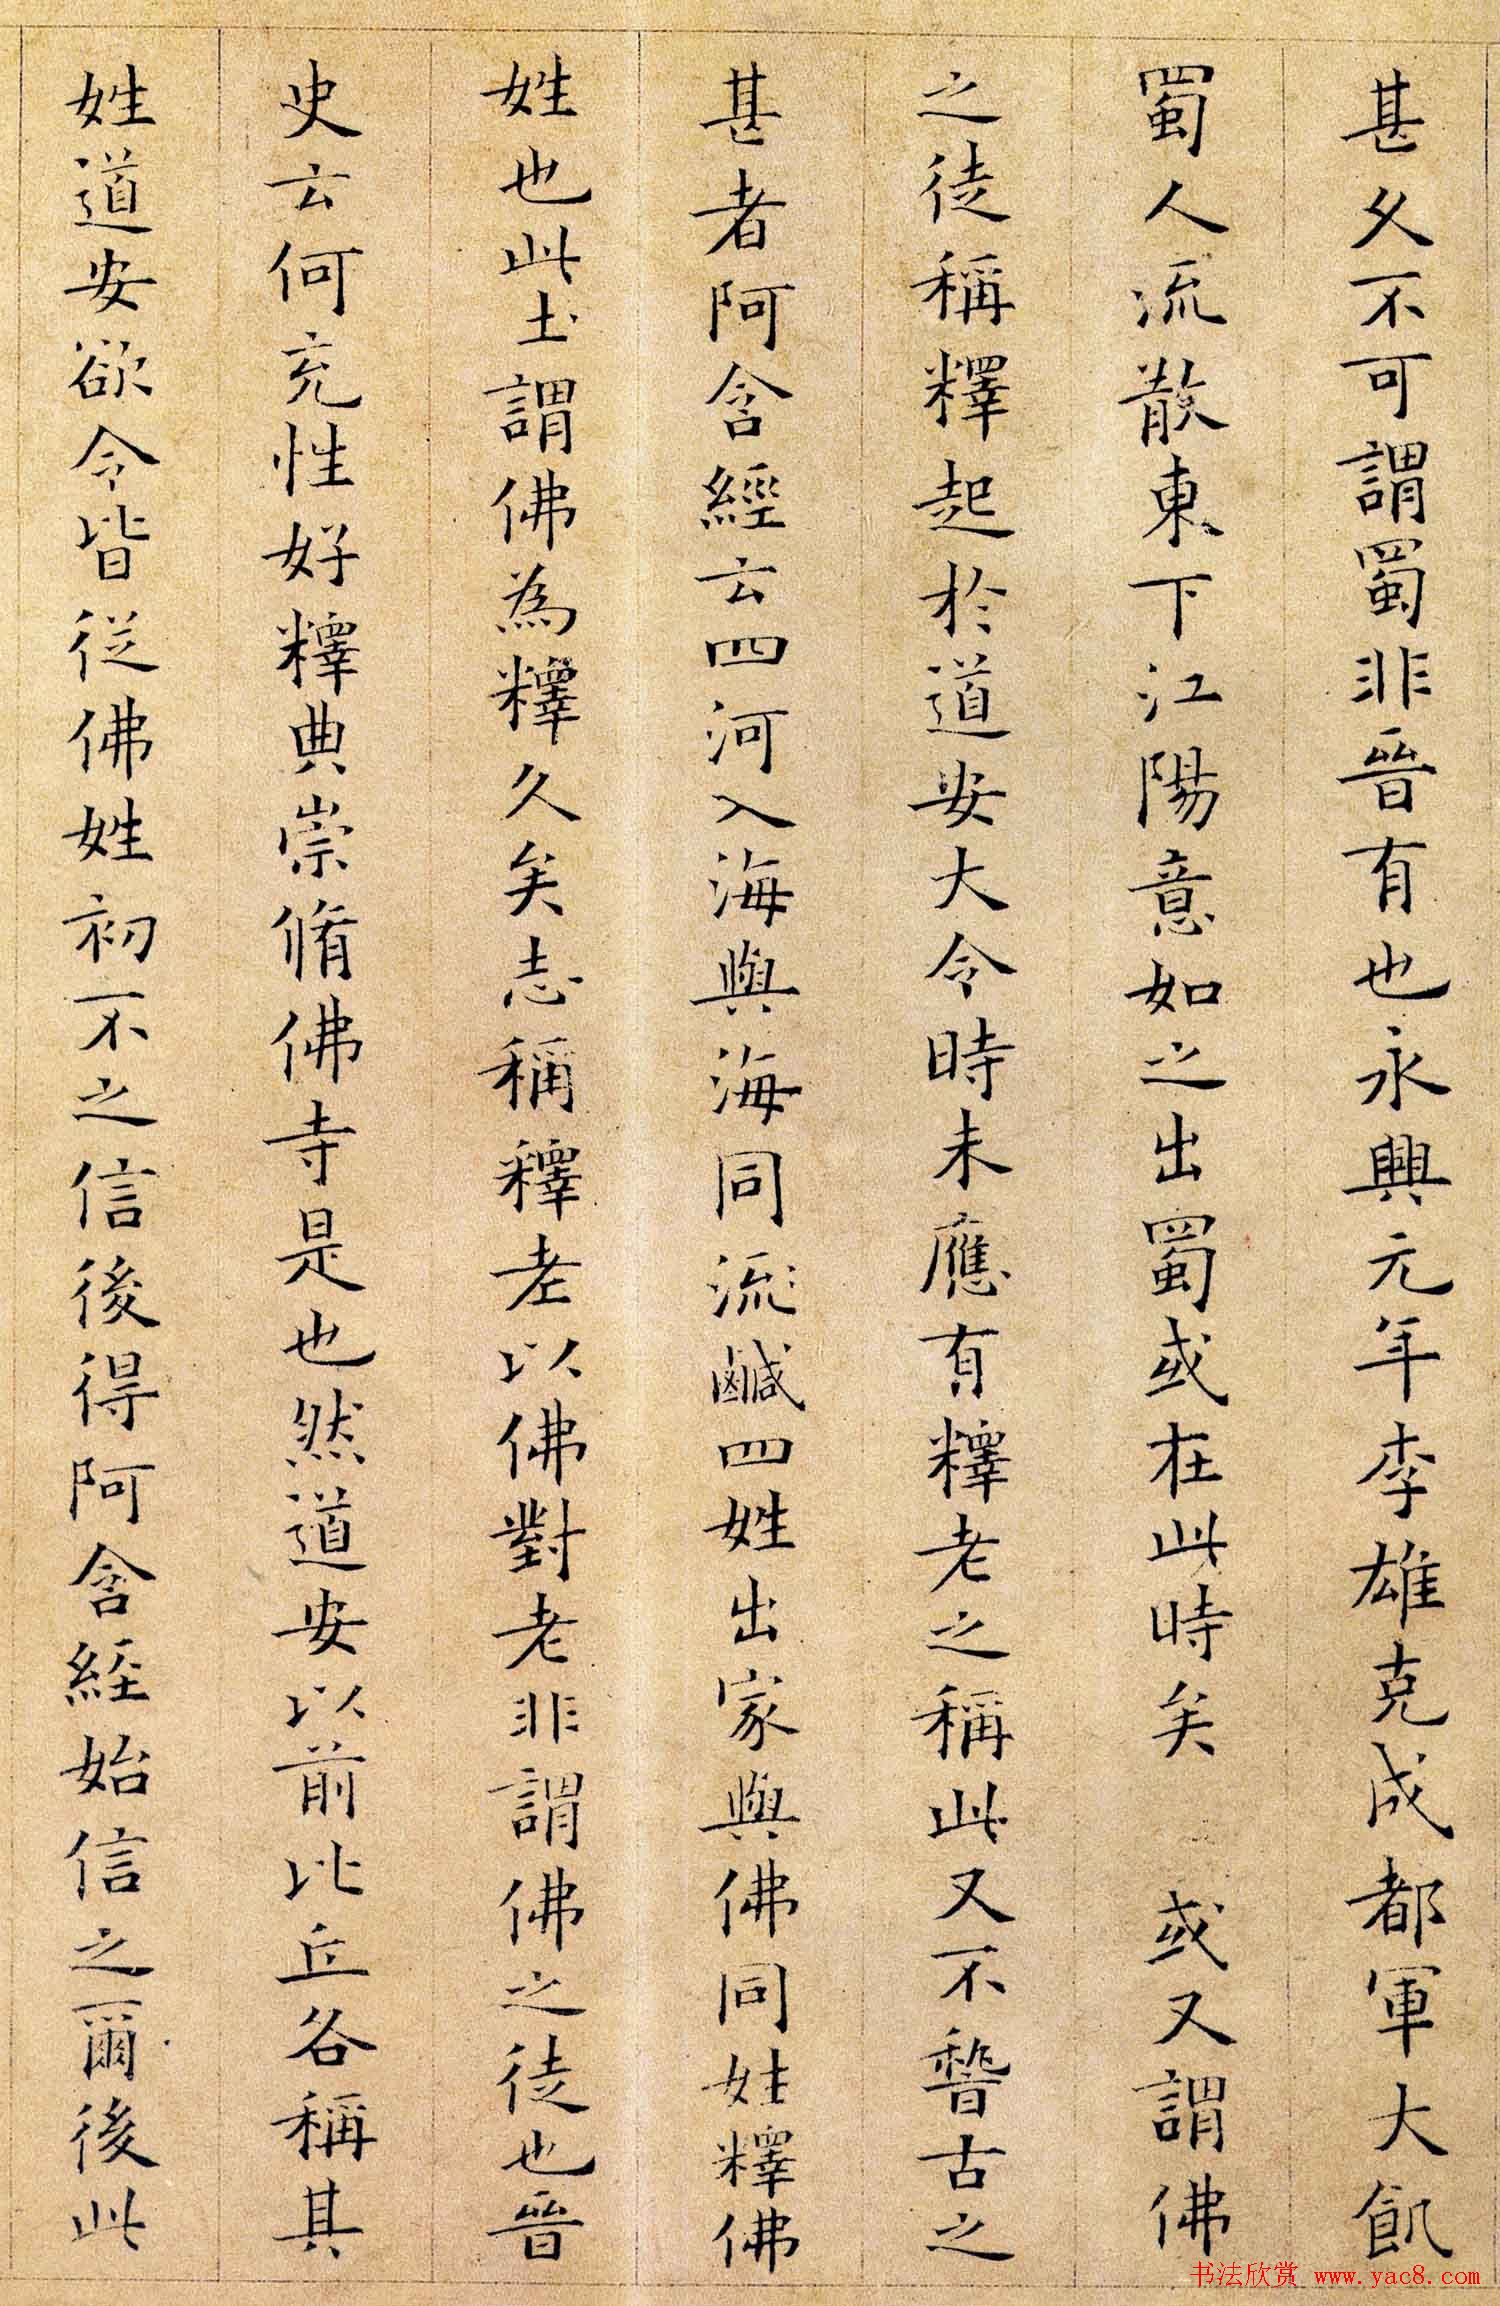 甚久不可謂蜀非晉有也永興元年李雄克成都軍大飢
蜀人流散東下江陽意如之出蜀或在此時矣 或又謂佛
之徒稱釋起於道安大令時未應有釋老之稱此又不稽古之
甚者阿含經云四河入海與海同流鹹四姓出家與佛同姓釋佛
姓也此土謂佛為釋久矣志稱釋老以佛對老非謂佛之徒也晉
史云何充性好釋典崇脩佛寺是也然道安以前比丘各稱其
姓道安欲令皆從佛姓初不之信後得阿含經始信之爾後此
书法欣赏 www.yac8.com